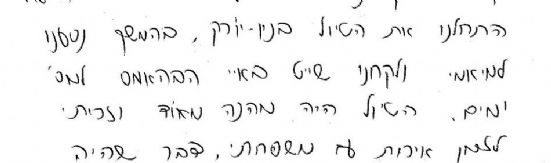 התחלנו את הטיול בניו-יורק, בהמשך נסענו
למיאמי ולקחנו שייט באיי הבהאמס למס'
ימים. הטיול היה מהנה מאוד וזכיתי
לזמן איכות עם משפחתי, דבר שהיה